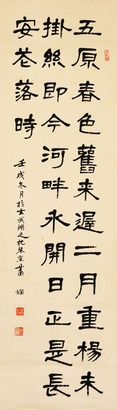 五原春色舊来遲二月垂楊未
掛絲即今河畔冰開日正是長
安花落時
壬戌冬月於玄武湖之枕琴室蕭嫻